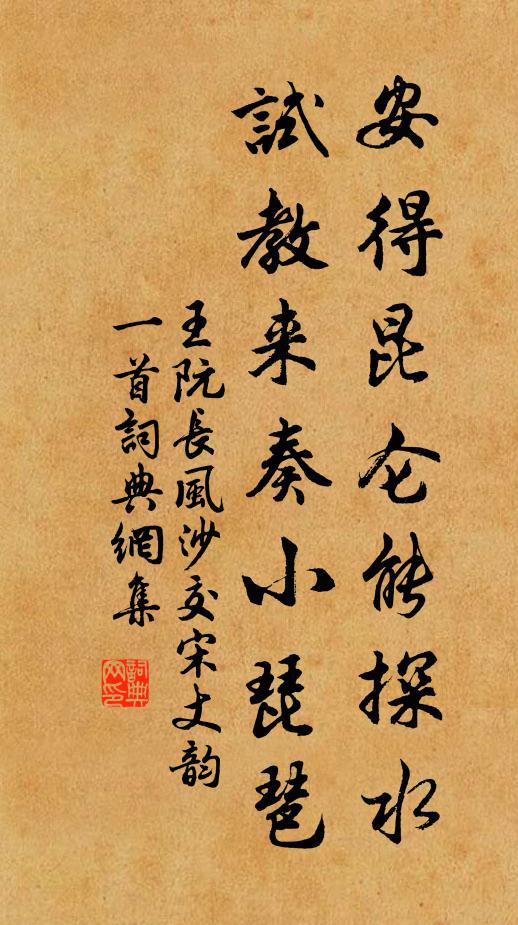 安得昆仑能探水
試教来奏小琵琶
王阮長風沙交宋丈韵
一首詞典網集
詞典网印